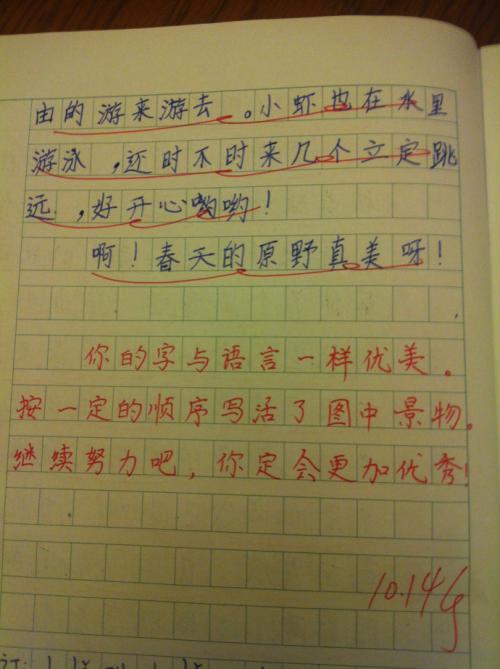 由的游来游去。小虾也在水里
游泳,还时不时来几个立定跳
远,好开心哟哟!
啊!春天的原野真美呀!
你的字与语言一样优美。
按一定的顺序写活了图中景物。
继续努力吧,你定会更加优秀!
10.14